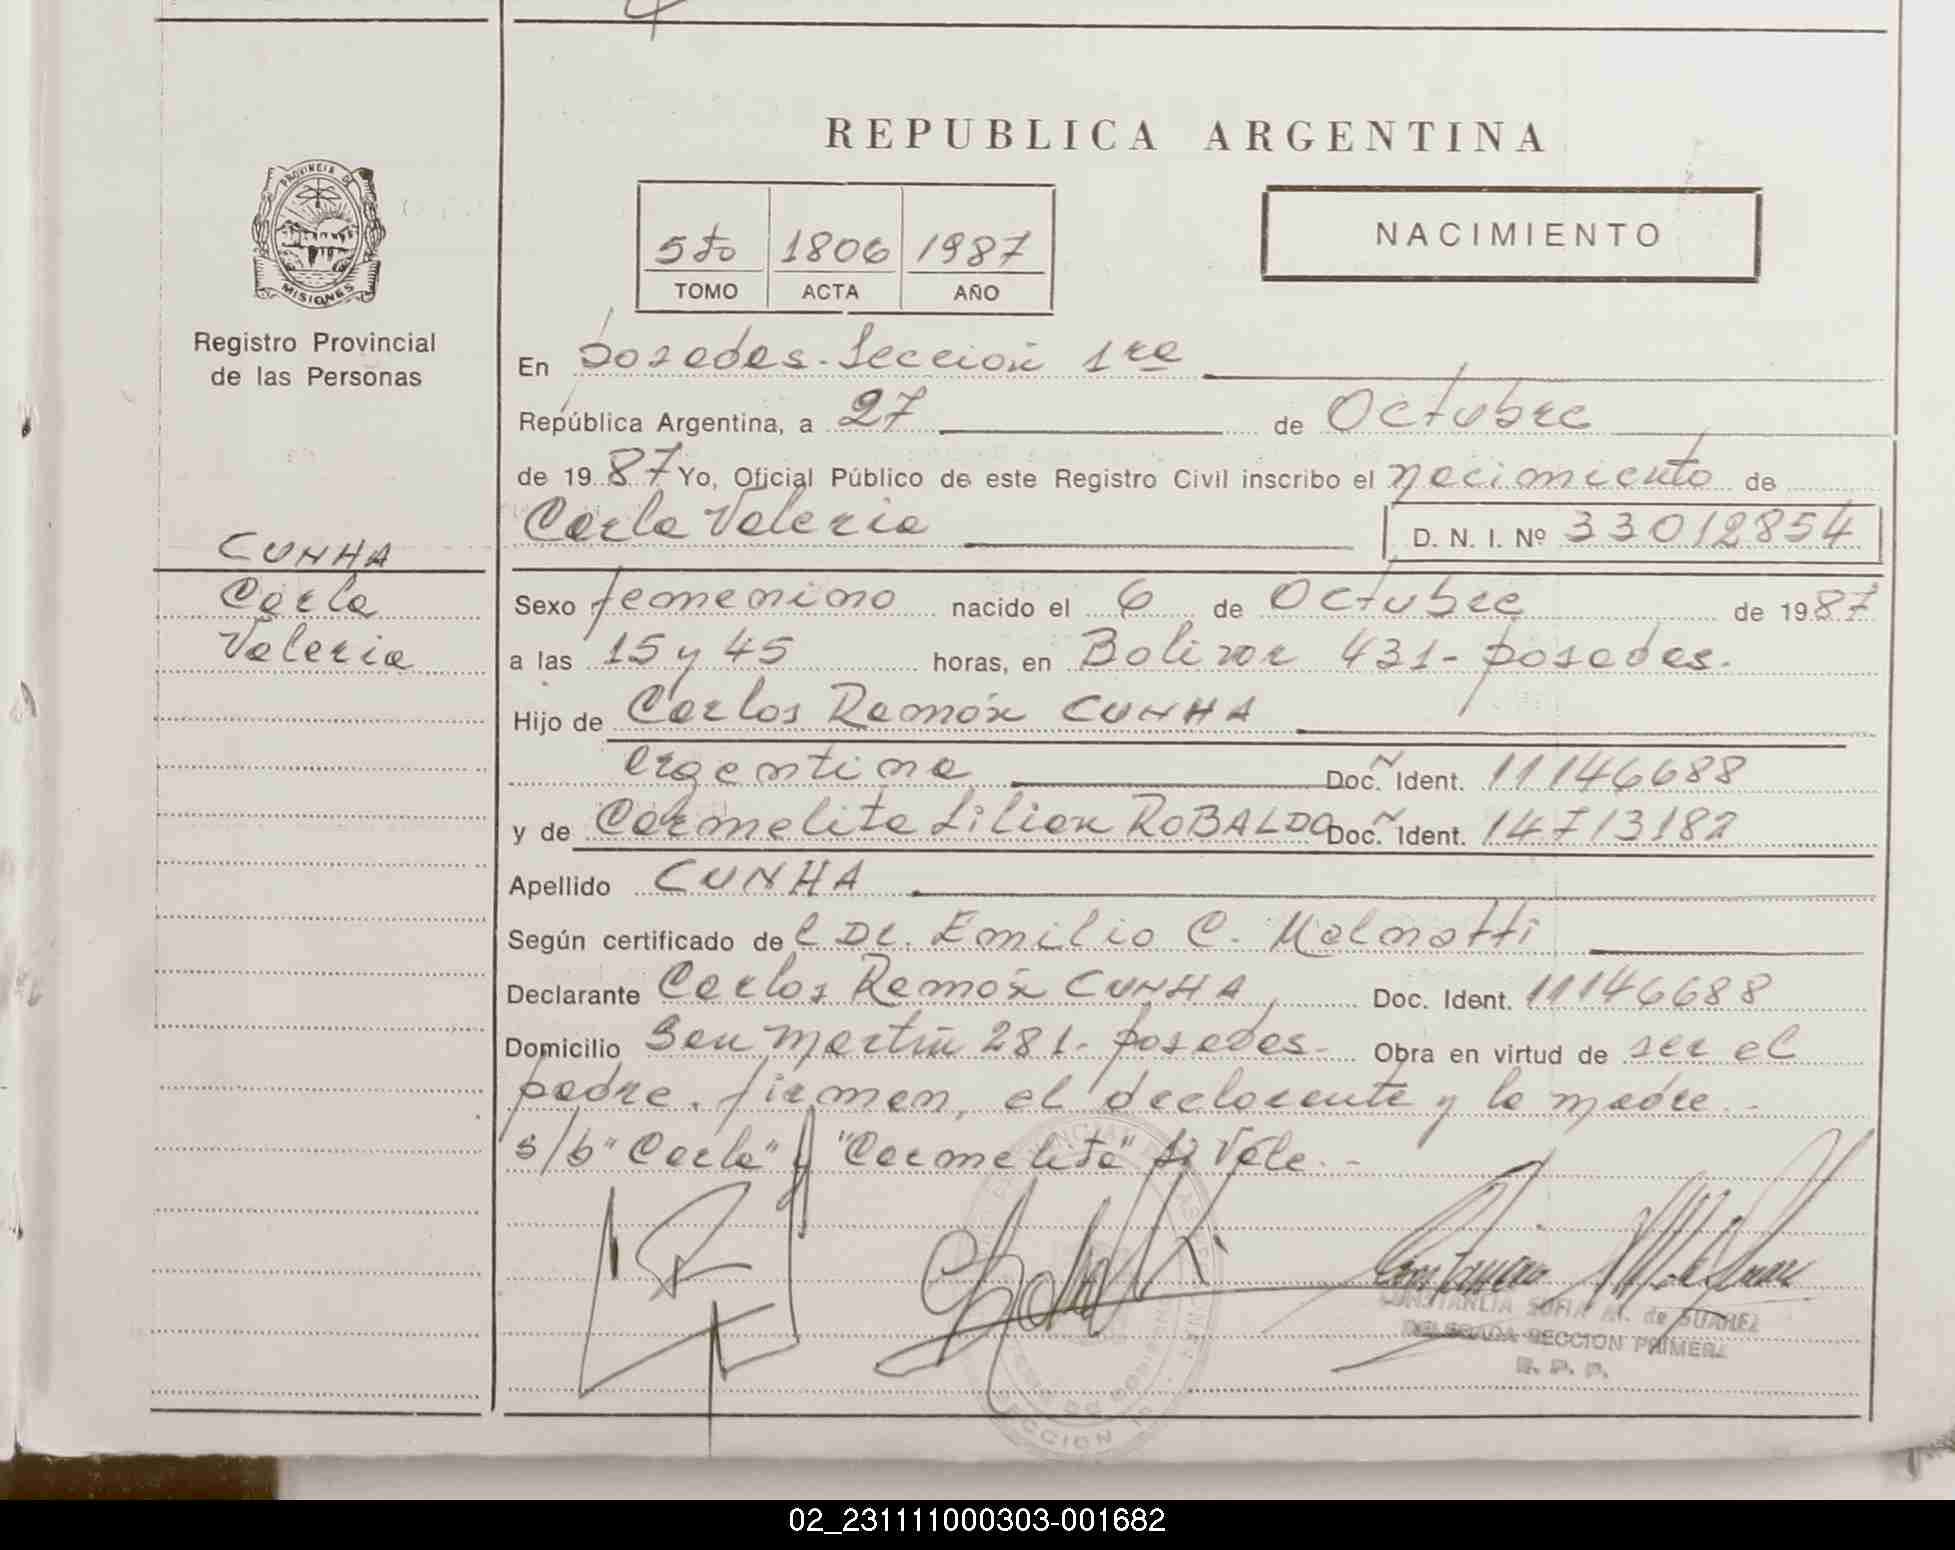 REPUBLICA ARGENTINA
PROVINCIA DE
MISIONES
Registro Provincial
de las Personas
5to 1806 1987
TOMO ACTA AÑO
NACIMIENTO
En Posadas-Sección 1ra
República Argentina, a 27 de Octubre
de 1987 Yo, Oficial Público de este Registro Civil inscribo el nacimiento de
Carla Valeria D. N. I. Nº 33012854
CUNHA
Carla
Valeria
Sexo femenino nacido el 6 de Octubre de 1987
a las 15 y 45 horas, en Bolivar 431-Posadas.
Hijo de Carlos Ramón CUNHA
argentina Doc. Ident. 11146688
y de Carmelita Lilian ROBALDO Doc. Ident. 14713182
Apellido CUNHA
Según certificado de l Dr. Emilio C. Malnatti
Declarante Carlos Ramón CUNHA, Doc. Ident. 11146688
Domicilio San Martín 281-Posadas- Obra en virtud de ser el
padre. firman, el declarante y la madre.-
s/b "Carla" y "Carmelita" Vale.-
CONSTANCIA SOFIA M. de SUAREZ
DELEGADA SECCION PRIMERA
R. P. P.
02_231111000303-001682